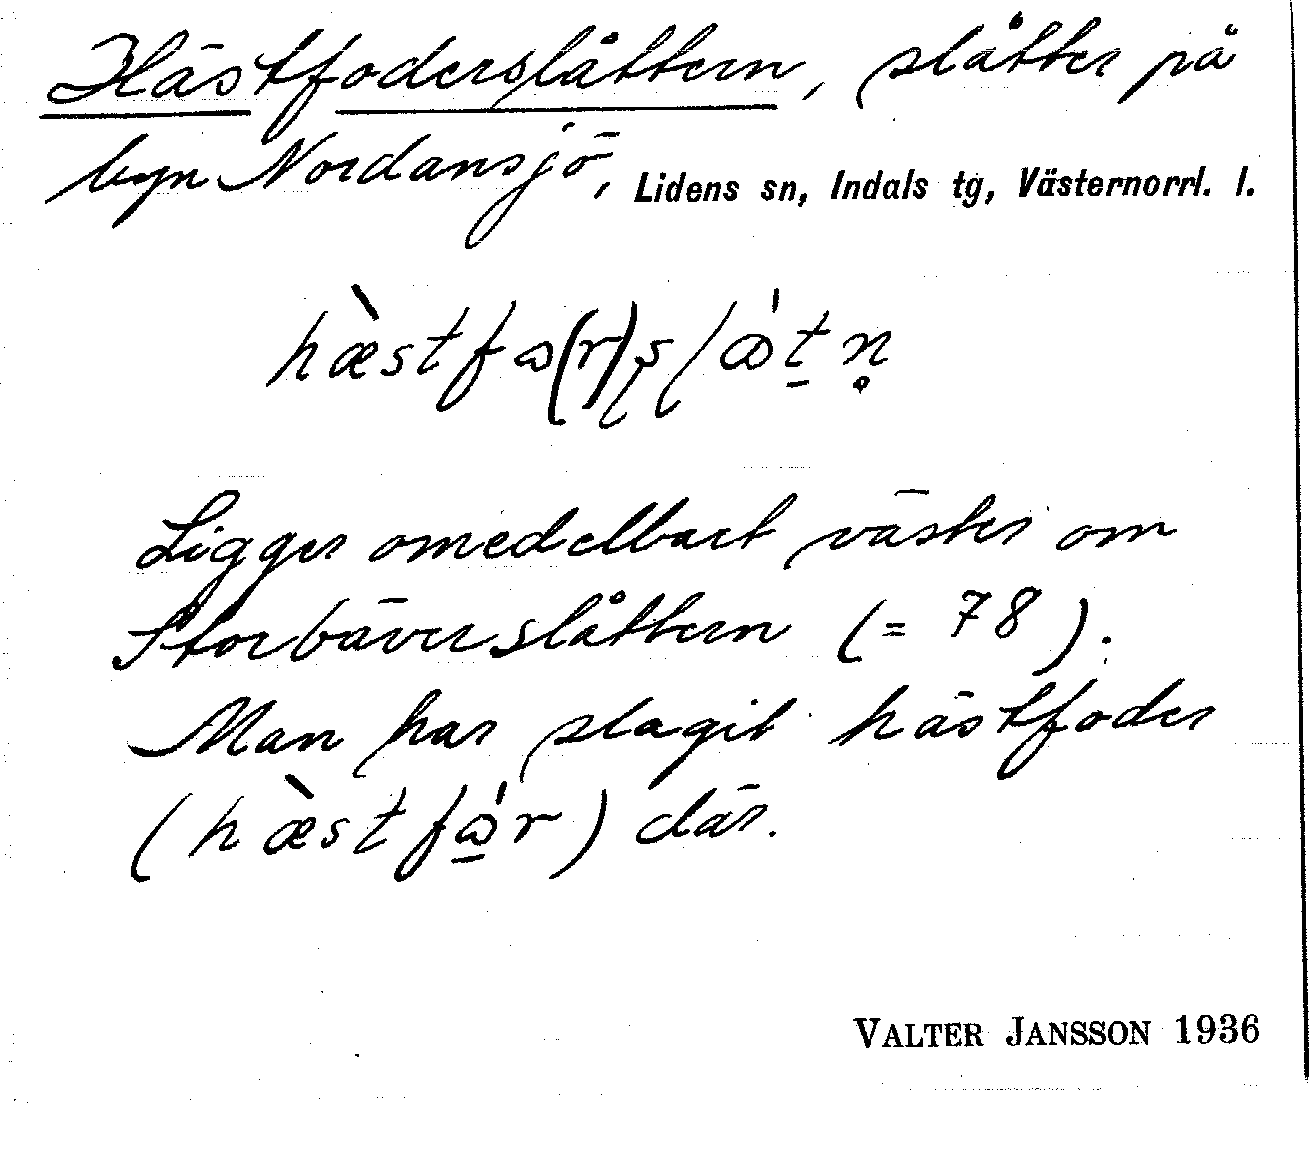 Hästfoderslåttern, slåtter på
byn Nordansjö, Lidens sn, Indals tg, Västernorrl. l.
Ligger omedelbart väster om
Storbäverslåttern (= 78).
Man har slagit hästfoder
där.
VALTER JANSSON 1936